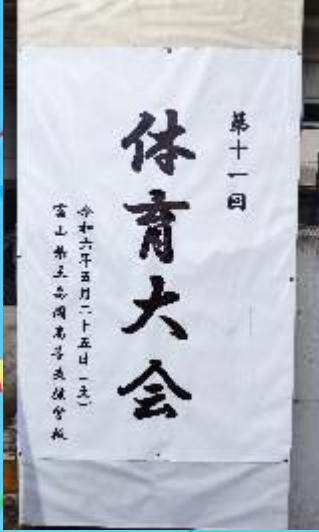 第十一回
体育大会
令和六年五月二十五日(土)
富山県立高岡高等支援学校